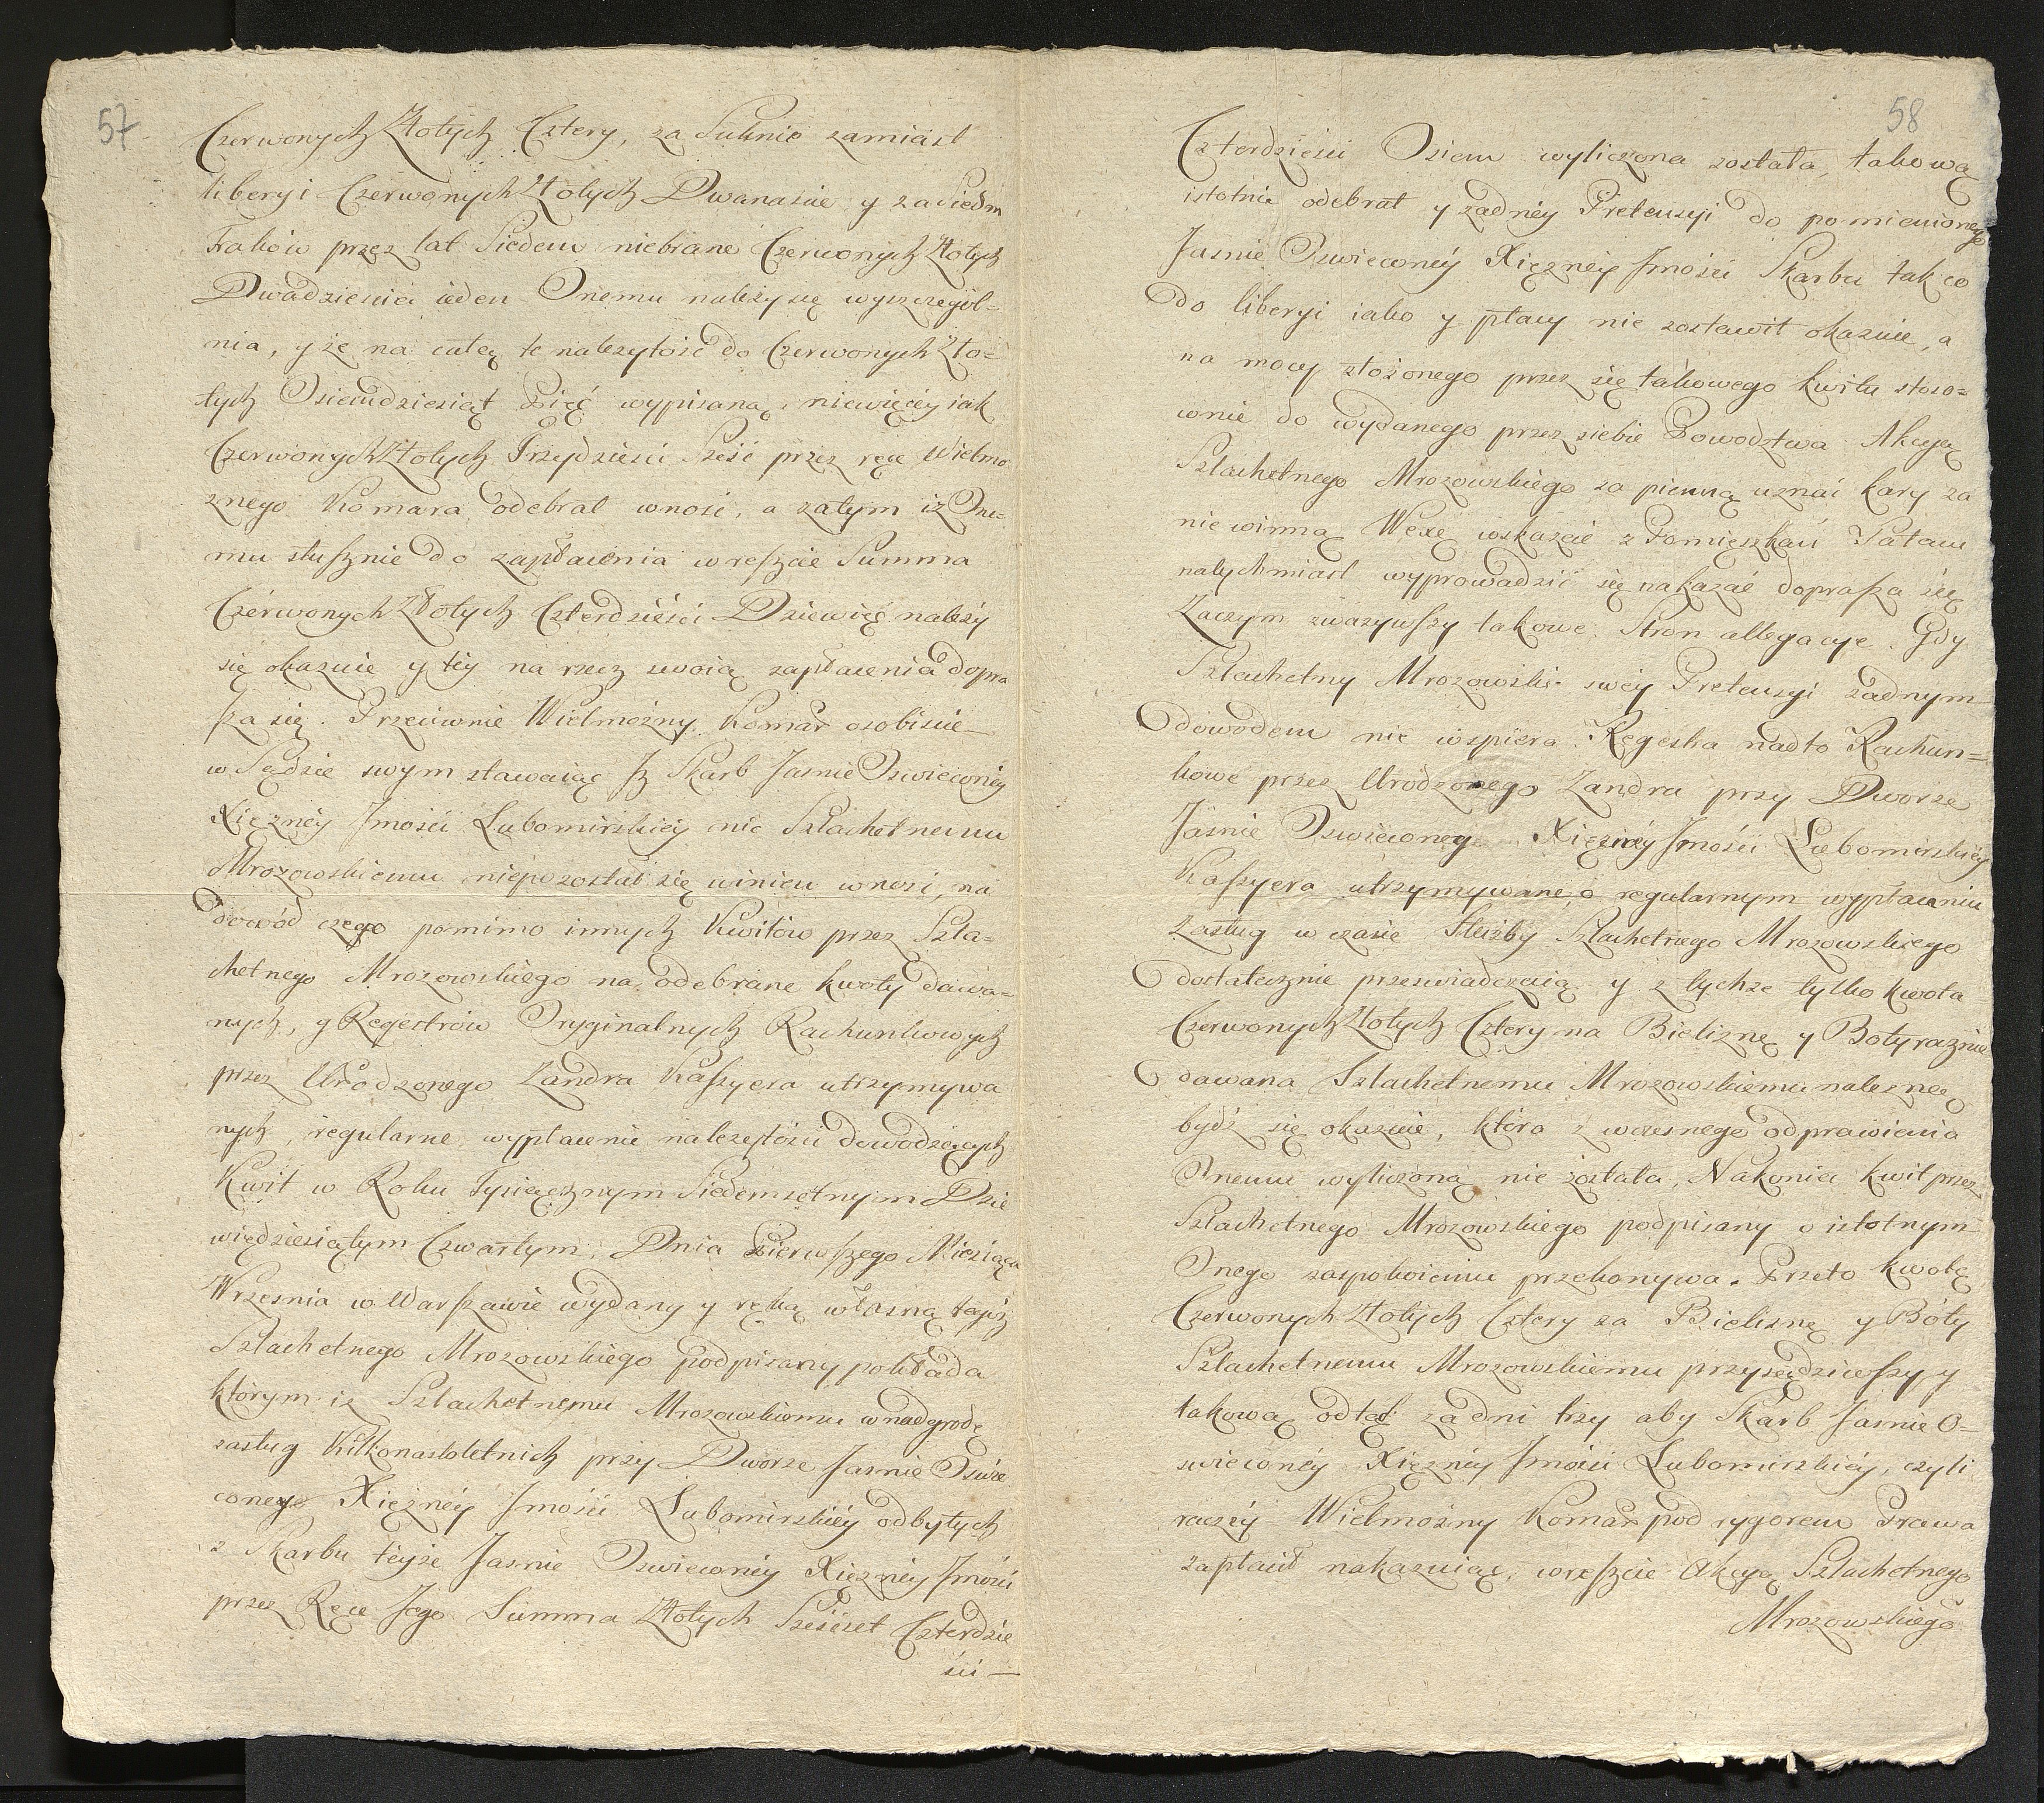 57
Czerwonych Złotych Cztery, za Suknie zamiast
liberyi Czerwonych Złotych Dwanascie y za Siedm
Fraków przez lat Siedem niebrane Czerwonych Złotych
Dwadziescia ieden Onemu należy się wyszczegól=
nia, y że na całą te należytość do Czerwonych Zło=
tych Osiemdziesiąt Pięć wypisaną, niewięcéy iak
Czerwonych Złotych Trzydziesci Sześć przez ręce Wielmo
żnego Komara odebrał wnosi, a zatym iż One=
mu słusznie do zapłacenia wreszcie Summa
Czérwonych Złotych Czterdzieści Dziewięć należy
się okazuie y téy na rzecz swoią zapłacenia dopra
sza się. Przeciwnie Wielmożny Komar osobiscie
w Sądzie swym stawaiąc iż Skarb Jasnie Oswieconéy
Xiężnéy Jmości Lubomirskiéy nic Szlachetnemu
Mrozowskiemu niepozostał się winien wnosi, na
dowód czego pomimo innych Kwitów przez Szla=
chetnego Mrozowskiego na odebrane kwoty dawa=
nych, y Regestrów Oryginalnych Rachunkowych
przez Urodzonego Zandra Kassyera utrzymywa
nych, regularne wypłacenie należytości dowodzących
Kwit w Roku Tysiącznym Siedemsetnym Dzie
więdziesiątym Czwartym, Dnia Pierwszego Miesiąca
Wrzesnia w Warszawie wydany y ręką własną tegoż
Szlachetnego Mrozowskiego podpisany pokłada
którym iż Szlachetnemu Mrozowskiemu w nadgrodę
zasług kilkonastoletnich przy Dworze Jasnie Oswie
coney Xiężnéy Jmości Lubomirskiéy odbytych
z Skarbu teyże Jasnie Oswieconéy Xiężnéy Jmości
przez Ręce Jego Summa Złotych Sześćset Czterdzie
ści —
58
Czterdzieści Osiem wyliczona została, takową
istotnie odebrał y żadnéy Pretensyi do pomienionego
Jasnie Oswieconéy Xiężnéy Jmości Skarbu tak co
do liberyi iako y płacy nie zostawił okazuie, a
na mocy złożonego przez się takowego kwitu stoso=
wnie do wydanego przez siebie Powodztwa Akcyą
Szlachetnego Mrozowskiego za pienną uznać kary za
niewinną Wexę wskazać z Pomięszkań Pałacu
natychmiast wyprowadzić się nakazać doprasza się
Zaczym zwazywszy takowe Stron allegacye. Gdy
Szlachetny Mrozowski swéy Pretensyi żadnym
dowodem nie wspiera. Regestra nadto Rachun=
kowe przez Urodzonego Zandra przy Dworze
Jasnie Oswieconey Xiężnéy Jmości Lubomirskiéy
Kassyera utrzymywane, o regularnym wypłaceniu
Zasług w czasie Służby Szlachetnego Mrozowskiego
dostatecznie przeswiadczaią y z tychże tylko kwota
Czerwonych Złotych Cztery na Bieliznę y Boty raznie
dawana Szlachetnemu Mrozowskiemu należneę
bydź się okazuie, która z wczesnego odprawienia
Onemu wyliczoną nie została, Nakoniec kwit przez
Szlachetnego Mrozowskiego podpisany o istotnym
Onego zaspokoieniu przekonywa. Przeto kwotę
Czerwonych Złotych Cztery za Bieliznę y Bóty
Szlachetnemu Mrozowskiemu przysądziwszy y
takową odtąd za dni trzy aby Skarb Jasnie O=
swieconéy Xiężnéy Jmości Lubomirskiéy, czyli
raczéy Wielmożny Komar pod rygorem Prawa
zapłacił nakazuiąc, wreszcie Akcyą Szlachetnego
Mrozowskiego